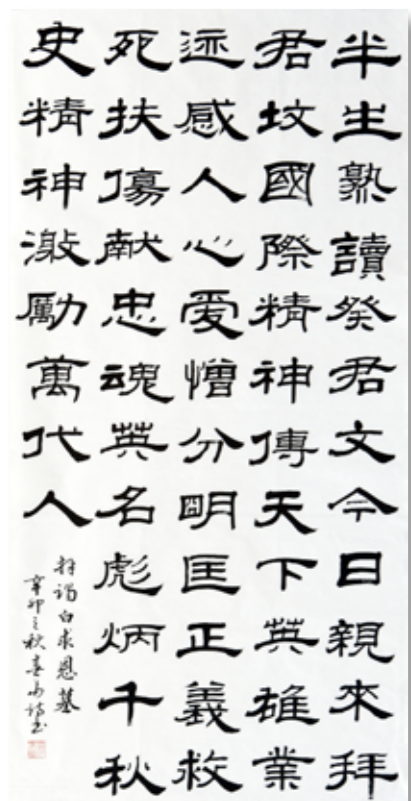 半生熟讀癸君文今日親來拜
君坟國際精神傳天下英雄業
迹感人心爱憎分明匡正義救
死扶傷献忠魂英名彪炳千秋
史精神激勵萬代人
拜謁白求恩墓
辛卯之秋